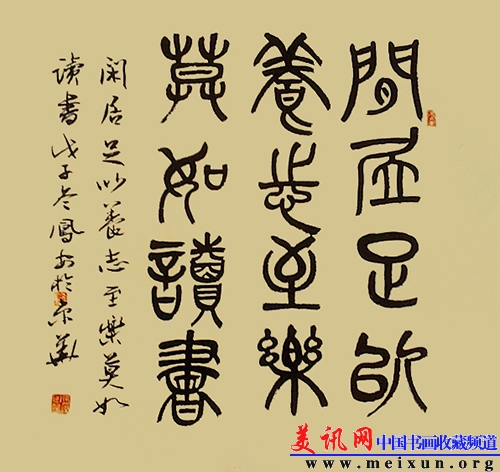 閒居足以
養志至樂
莫如讀書
闲居足以養志至樂莫如
读書戊子冬鳳 於京華
美讯网 中国书画收藏频道
www.meixun.org